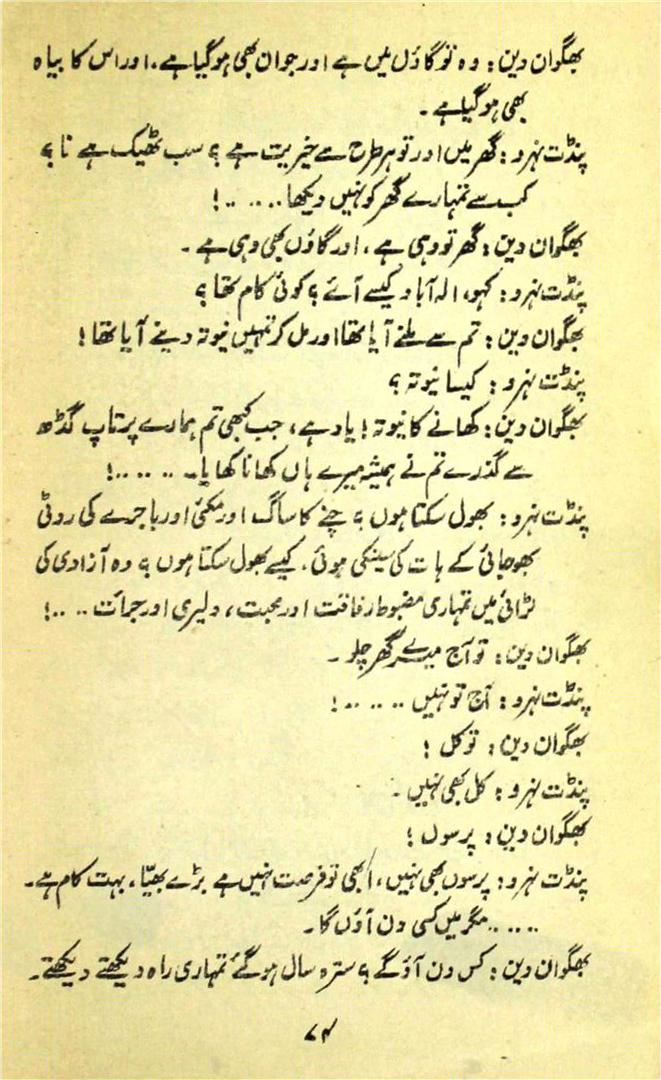 بھگوان دین: وہ تو گاؤں میں ہے اور جوان بھی ہو گیا ہے، اور اس کا بیاہ
بھی ہو گیا ہے۔
پنڈت نہرو: گھر میں اور تو ہر طرح سے خیریت ہے؟ سب ٹھیک ہے نا؟
کب سے تمہارے گھر کو نہیں دیکھا.....!
بھگوان دین: گھر تو وہی ہے، اور گاؤں بھی وہی ہے۔
پنڈت نہرو: کہو، الہ آباد کیسے آئے؟ کوئی کام تھا؟
بھگوان دین: تم سے ملنے آیا تھا اور مل کر تمہیں نیوتہ دینے آیا تھا!
پنڈت نہرو: کیسا نیوتہ؟
بھگوان دین: کھانے کا نیوتہ! یاد ہے، جب کبھی تم ہمارے پرتاپ گڈھ
سے گذرے تم نے ہمیشہ میرے ہاں کھانا کھایا.....!
پنڈت نہرو: بھول سکتا ہوں؟ چنے کا ساگ اور مکئی اور باجرے کی روٹی
بھوجائی کے ہات کی سینکی ہوئی، کیسے بھول سکتا ہوں؟ وہ آزادی کی
لڑائی میں تمہاری مضبوط رفاقت اور محبت، دلیری اور جرأت....!
بھگوان دین: تو آج میرے گھر چلو۔
پنڈت نہرو: آج تو نہیں.....!
بھگوان دین: تو کل!
پنڈت نہرو: کل بھی نہیں۔
بھگوان دین: پرسوں!
پنڈت نہرو: پرسوں بھی نہیں، ابھی تو فرصت نہیں ہے بڑے بھیّا، بہت کام ہے۔
.....مگر میں کسی دن آؤں گا۔
بھگوان دین: کس دن آؤ گے؟ سترہ سال ہو گئے تمہاری راہ دیکھتے دیکھتے۔